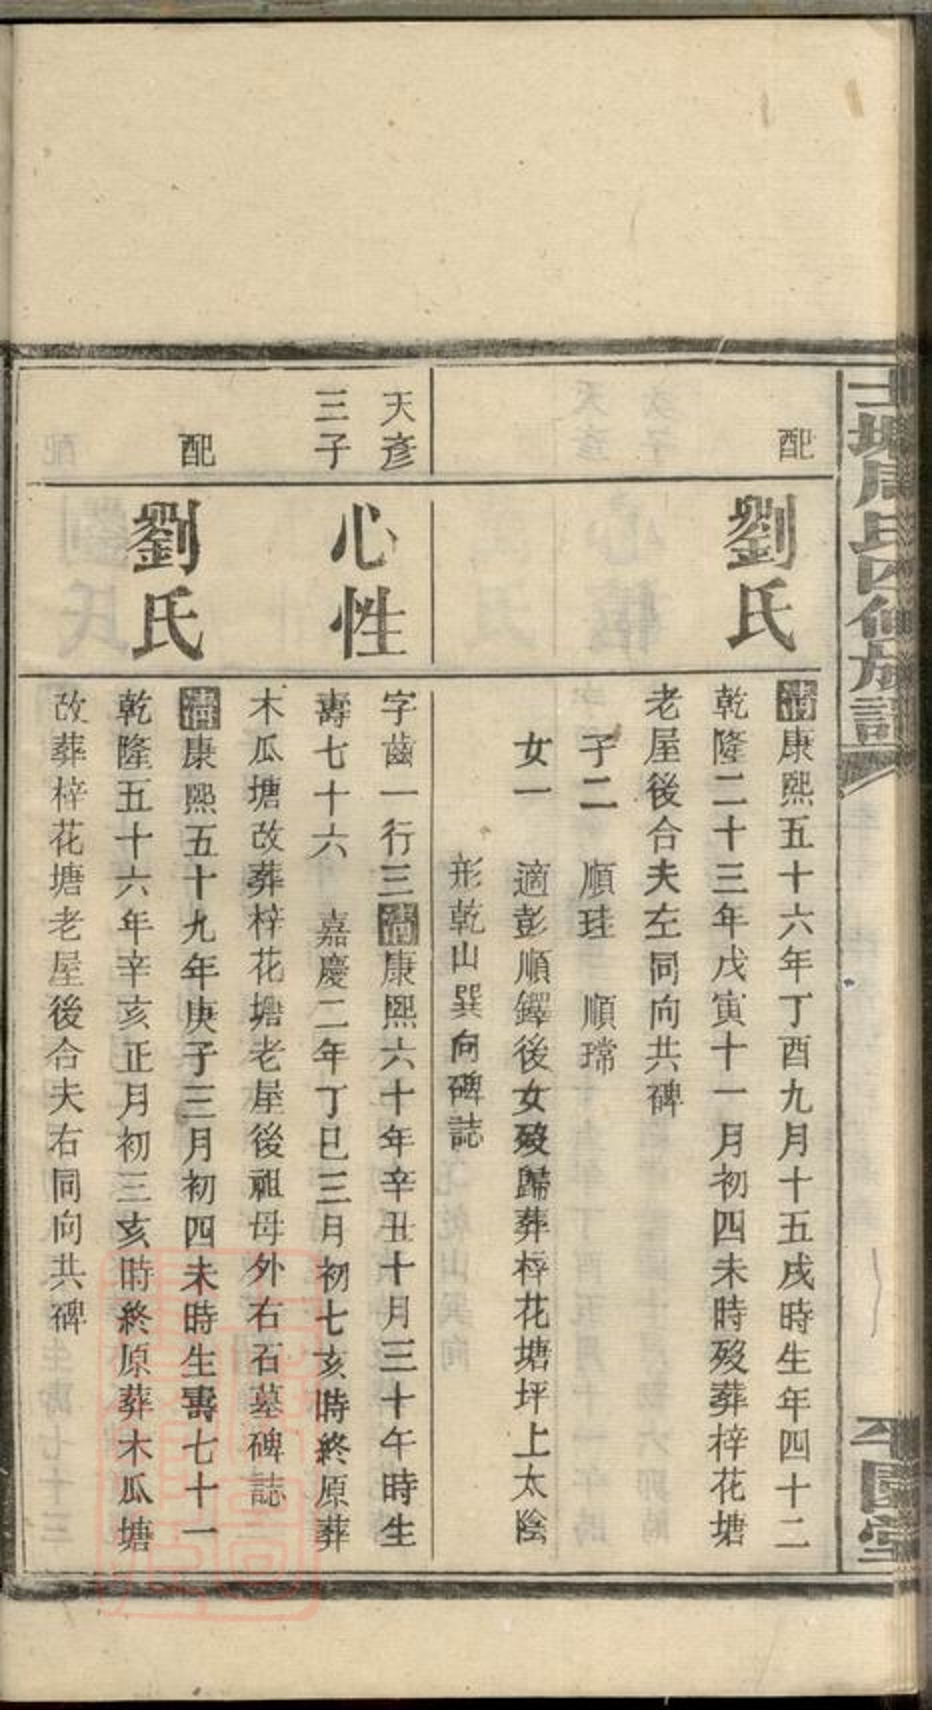 周氏四修族譜
配
劉氏
清康熙五十六年丁酉九月十五戌時生年四十二
乾隆二十三年戊寅十一月初四未時歿葬梓花塘
老屋後合夫左同向共碑
子二 順珪 順瑺
女一 適彭順鐸後女歿歸葬梓花塘坪上太陰
形乾山巽向碑誌
天彥
三子
心性
字齒一行三清康熙六十年辛丑十月三十午時生
壽七十六 嘉慶二年丁巳三月初七亥時終原葬
木瓜塘改葬梓花塘老屋後祖母外右石墓碑誌
配
劉氏
清康熙五十九年庚子三月初四未時生壽七十一
乾隆五十六年辛亥正月初三亥時終原葬木瓜塘
改葬梓花塘老屋後合夫右同向共碑